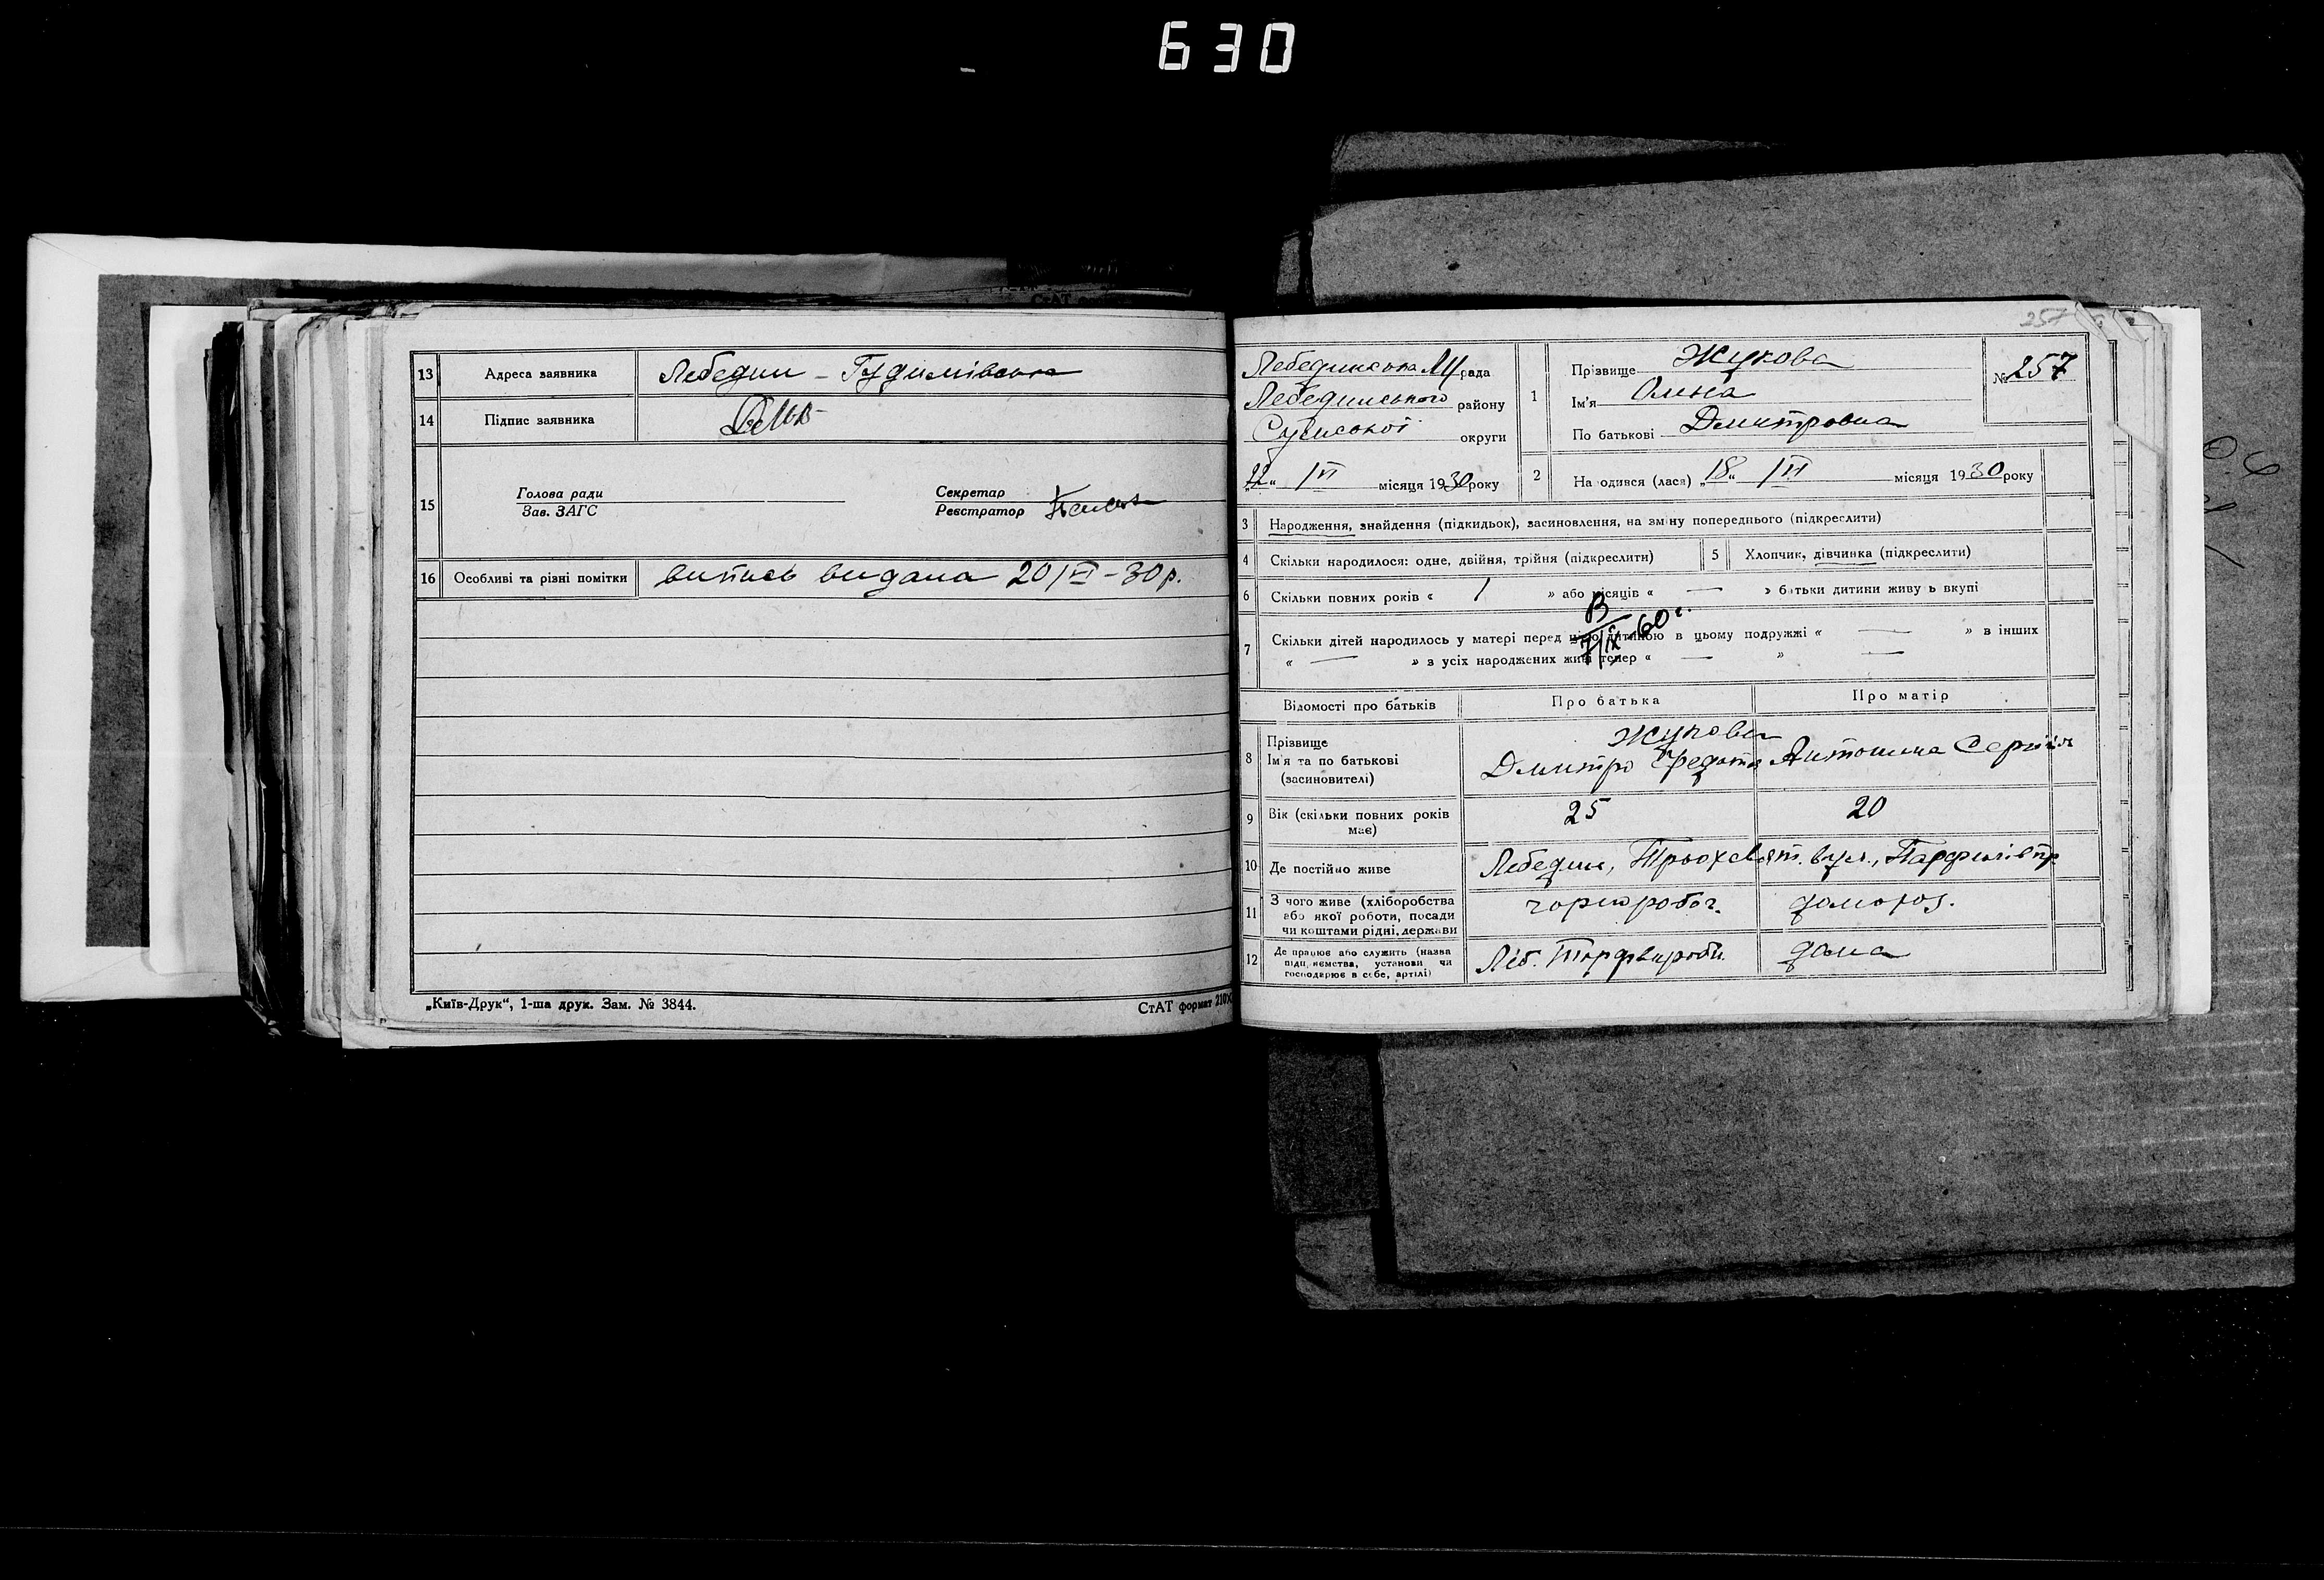 630
13 Адреса заявника Лебедин - Гудимівська
14 Підпис заявника
15 Голова ради
Зав. ЗАГС
Секретар
Реєстратор
16 Особливі та різні помітки витись видана 20/VI-30р.
„Київ-Друк“, 1-ша друк. Зам. № 3844.
СтАТ формат 210×
257
Лебединська М рада
Лебединського району
Сумської округи
„22“ IV місяця 1930 року
1 Прізвище Жукова
Ім'я Олена
По батькові Дмитровна
№ 257
2 Народився (лася) „18“ III місяця 1930 року
3 Народження, знайдення (підкидьок), засиновлення, на зміну попереднього (підкреслити)
4 Скільки народилося: одне, двійня, трійня (підкреслити)
5 Хлопчик, дівчинка (підкреслити)
6 Скільки повних років « 1 » або місяців « — » батьки дитини живуть вкупі
В
7/IX-60 г.
7 Скільки дітей народилось у матері перед цією дитиною в цьому подружжі « — » в інших
« — » з усіх народжених живі тепер « — » —
Відомості про батьків Про батька Про матір
8 Прізвище
Ім'я та по батькові
(засиновителі)
Жукови
Дмитро Федотов Антонина Сергіїв
9 Вік (скільки повних років має) 25 20
10 Де постійно живе Лебедин, Трьохсвят. вул.,
11 З чого живе (хліборобства
або якої роботи, посади
чи коштами рідні, держави
чорнороб. домогос.
12 Де працює або служить (назва
підприємства, установи чи
господарює в себе, артілі)
Леб. Торфвиробн. дома